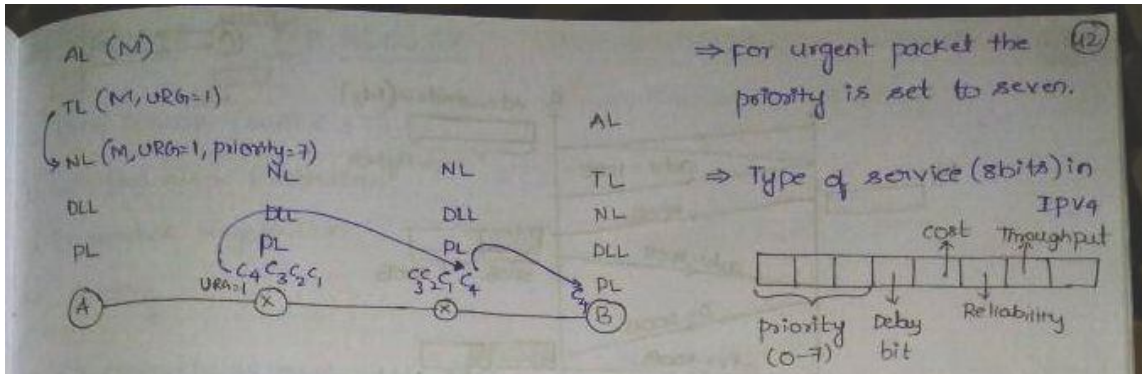 AL (M)
TL (M, URG=1)
NL (M, URG=1, priority=7)
DLL
PL
NL
DLL
PL
C4 C3 C2 C1
URG=1
A
X
NL
DLL
PL
C3 C2 C1 C4
X
AL
TL
NL
DLL
PL
C4
B
⇒ For urgent packet the
priority is set to seven.
42
⇒ Type of service (8bits) in
IPV4
cost Throughput
priority
(0-7)
Delay
bit
Reliability